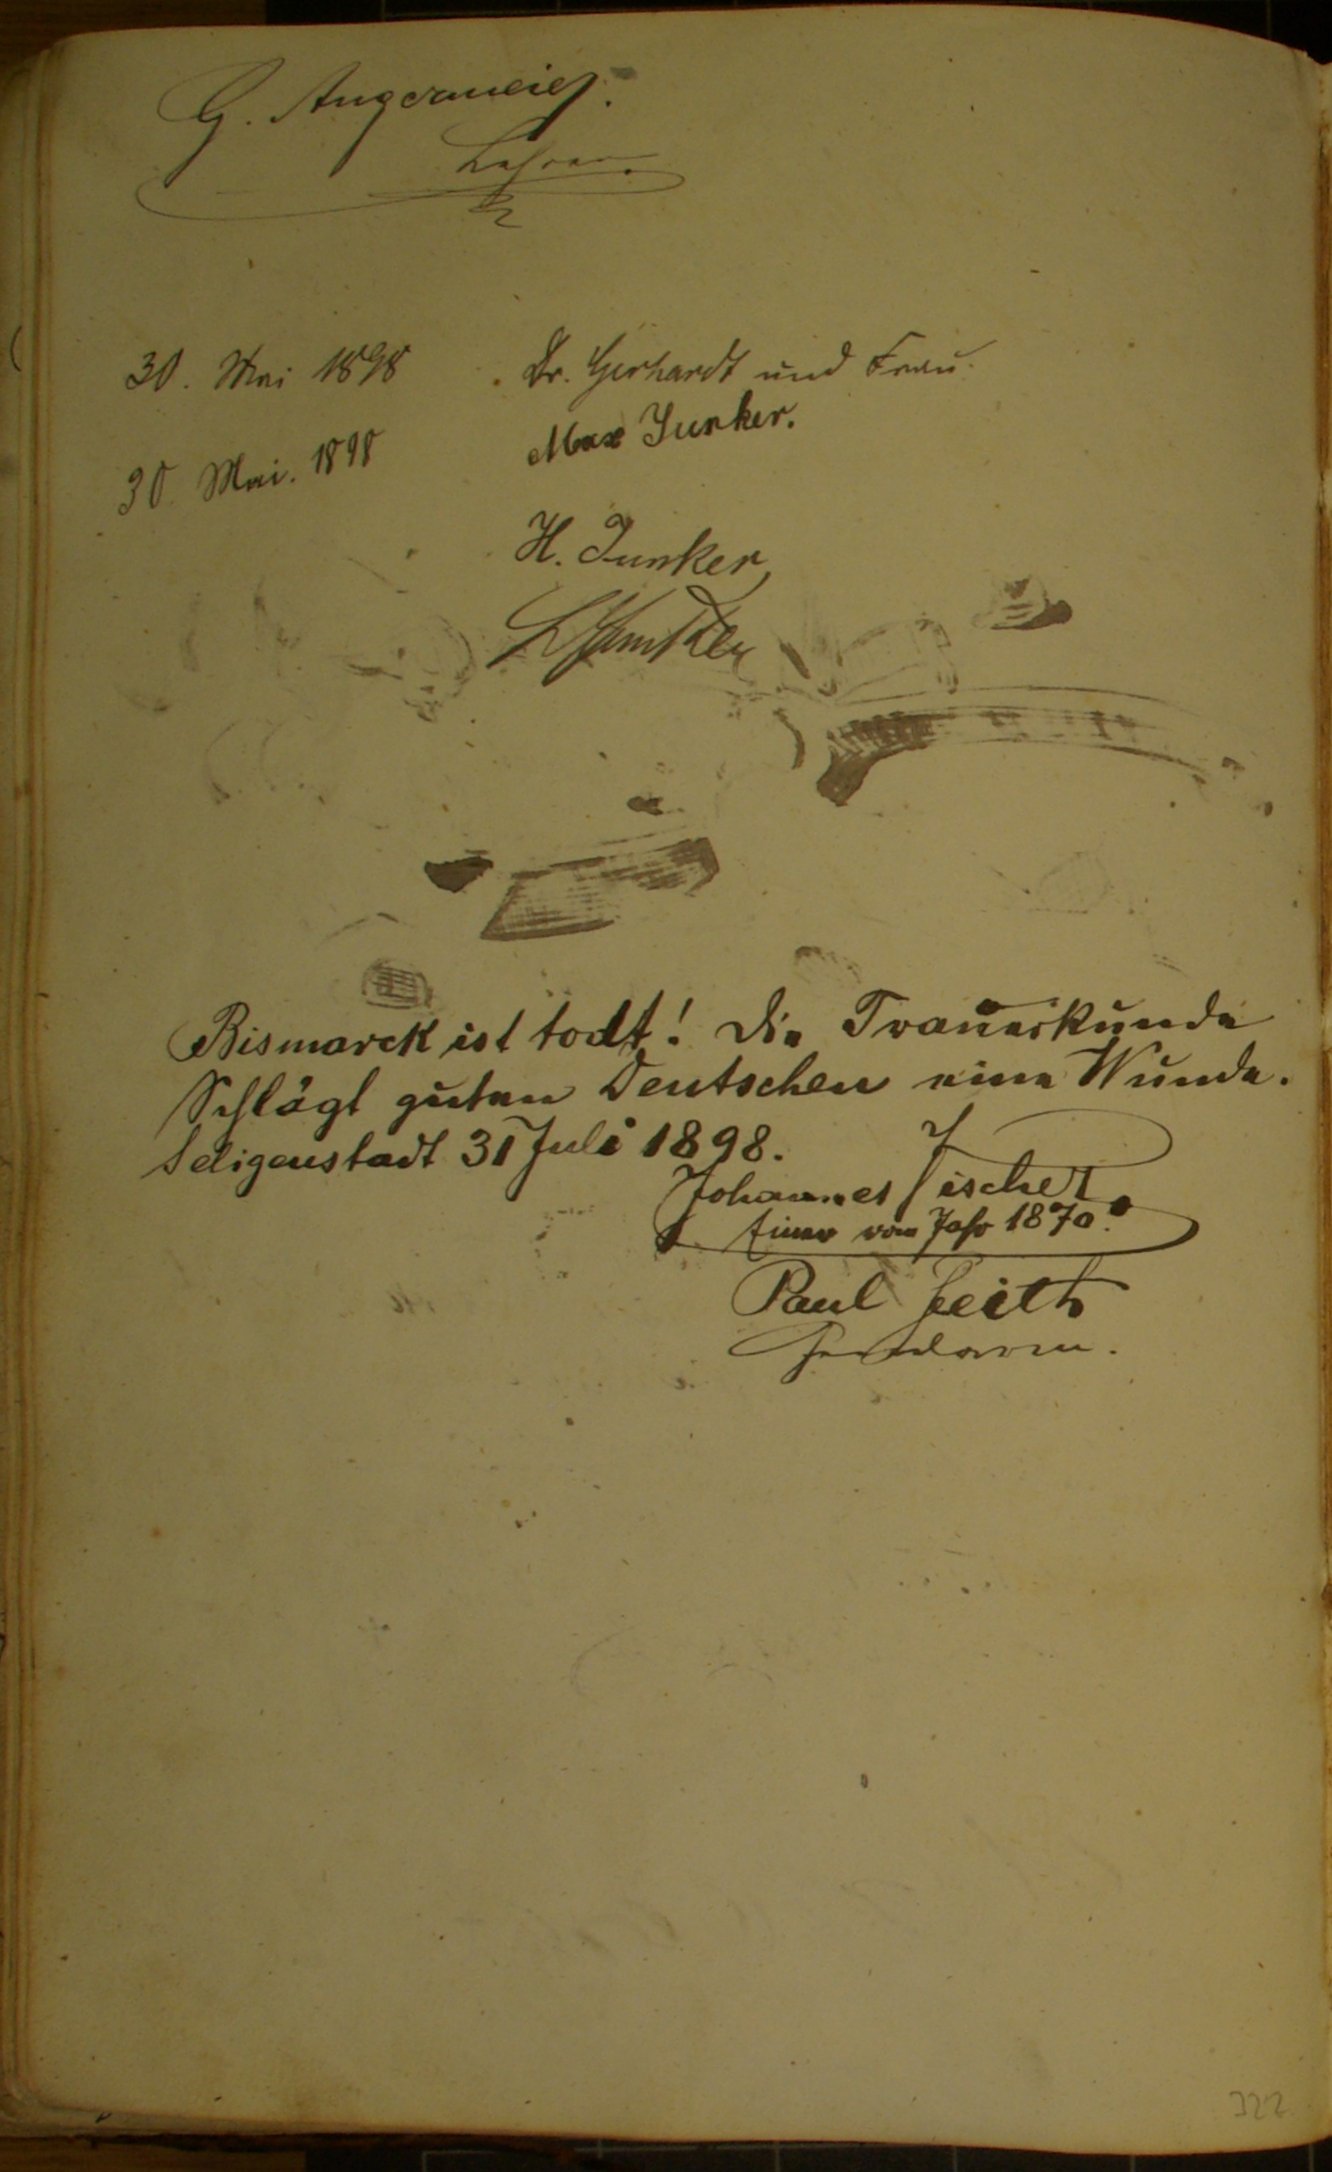 G. Angermeier.
Lehrer.
30. Mai 1898 Dr. Gerhardt und Frau.
30. Mai. 1898 Max Junker.
H. Junker
L Junker
Bismarck ist todt! Die Trauerkunde
Schlägt guten Deutschen eine Wunde.
Seligenstadt 31 Juli 1898.
Johannes Fischer
Einer vom Jahr 1870.
Paul Feith
Gendarm.
322